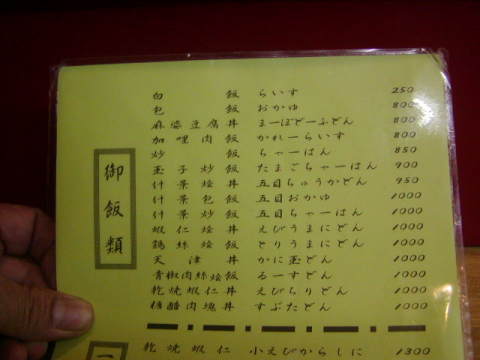 御飯類
白飯 らいす 250
包飯 おかゆ 800
麻婆豆腐丼 まーぼどーふどん 800
加哩肉飯 かれーらいす 800
炒飯 ちゃーはん 850
玉子炒飯 たまごちゃーはん 900
什景烩丼 五目ちゅうかどん 950
什景包飯 五目おかゆ 1000
什景炒飯 五目ちゃーはん 1000
蝦仁烩丼 えびうまにどん 1000
鶏絲烩飯 とりうまにどん 1000
天津丼 かに玉どん 1000
青椒肉絲烩飯 るーすどん 1000
乾焼蝦仁丼 えびちりどん 1000
酷肉塊丼 すぶたどん 1000
乾焼蝦仁 小えびからしに 1300